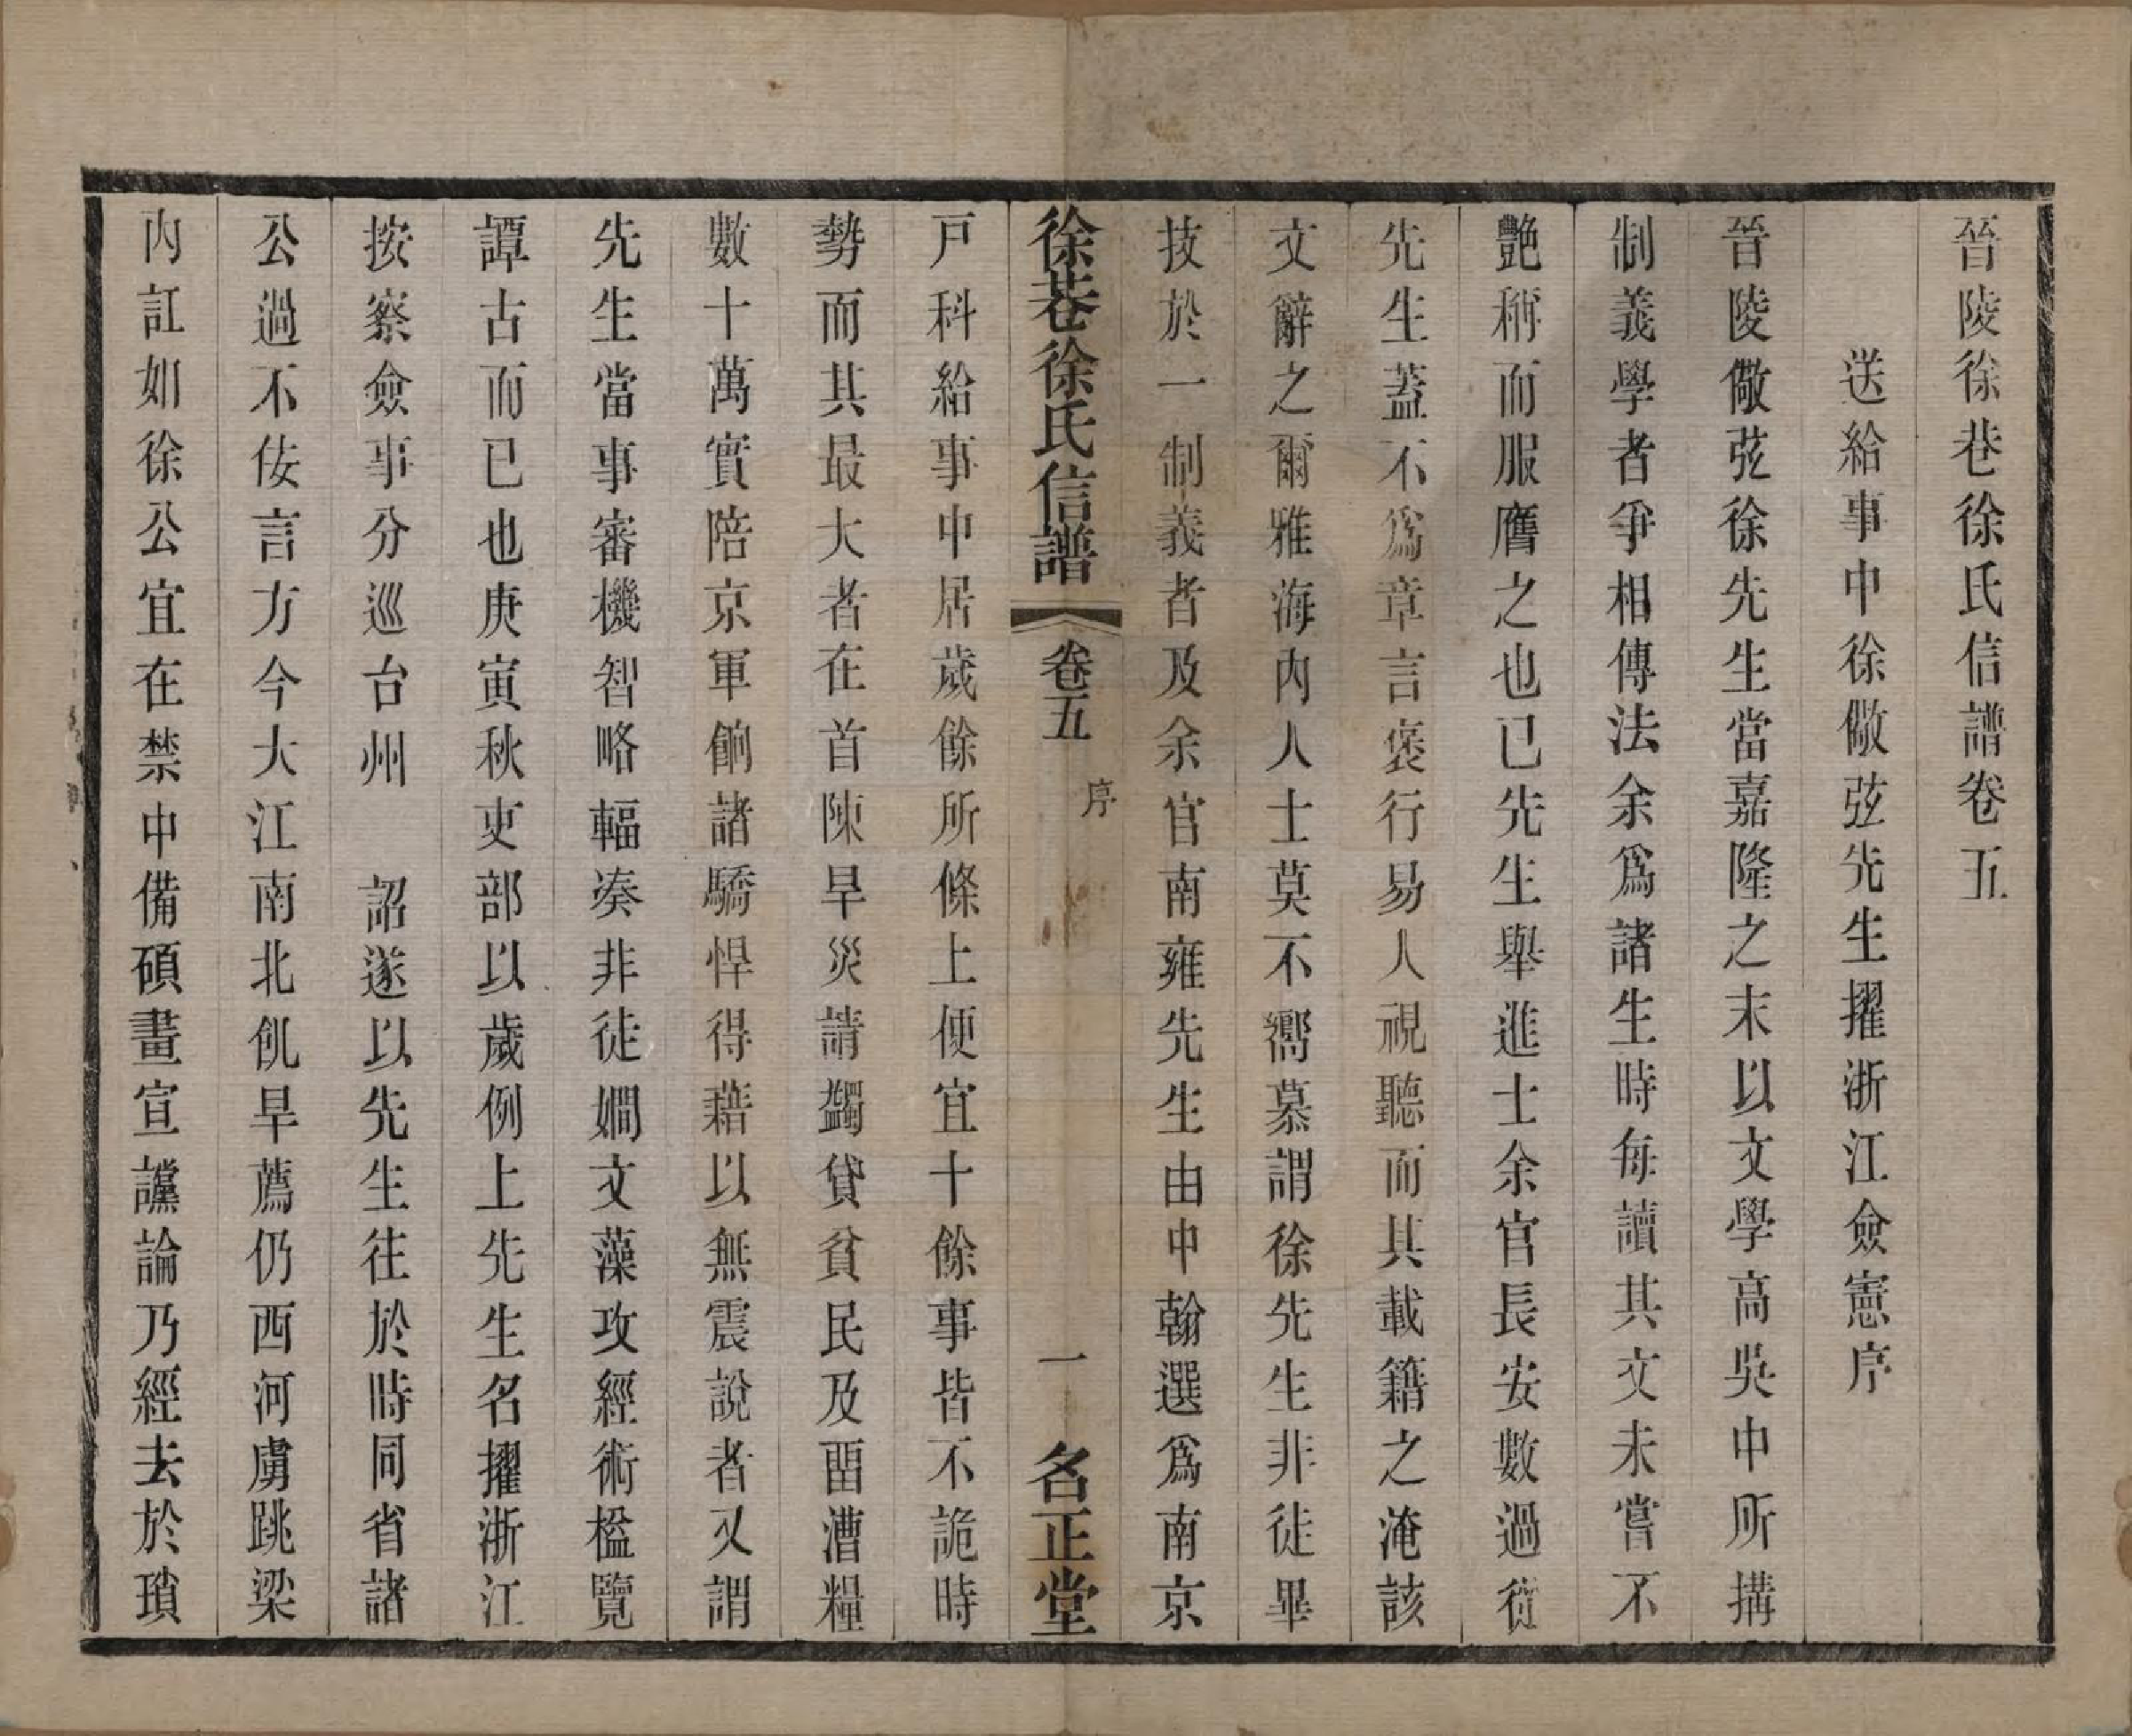 晉陵徐巷徐氏信譜卷五
送給事中徐儆弦先生擢浙江僉憲序
晉陵儆弦徐先生當嘉隆之末以文學高吳中所搆
制義學者爭相傳法余爲諸生時每讀其文未嘗不
艷稱而服膺之也已先生舉進士余官長安數過從
先生蓋不爲章言褒行易人視聽而其載籍之淹該
文辭之爾雅海內人士莫不嚮慕謂徐先生非徒畢
技於一制義者及余官南雍先生由中翰選爲南京
徐巷徐氏信譜 卷五 序 一 名正堂
戶科給事中居歲餘所條上便宜十餘事皆不詭時
勢而其最大者在首陳旱災請蠲貸貧民及畱漕糧
數十萬實陪京軍餉諸驕悍得藉以無震說者又謂
先生當事審機智略輻凑非徒嫺文藻攻經術楹覽
譚古而已也庚寅秋吏部以歲例上先生名擢浙江
按察僉事分巡台州 詔遂以先生往於時同省諸
公過不佞言方今大江南北飢旱薦仍西河虜跳梁
內訌如徐公宜在禁中備碩畫宣讜論乃經去於瑣